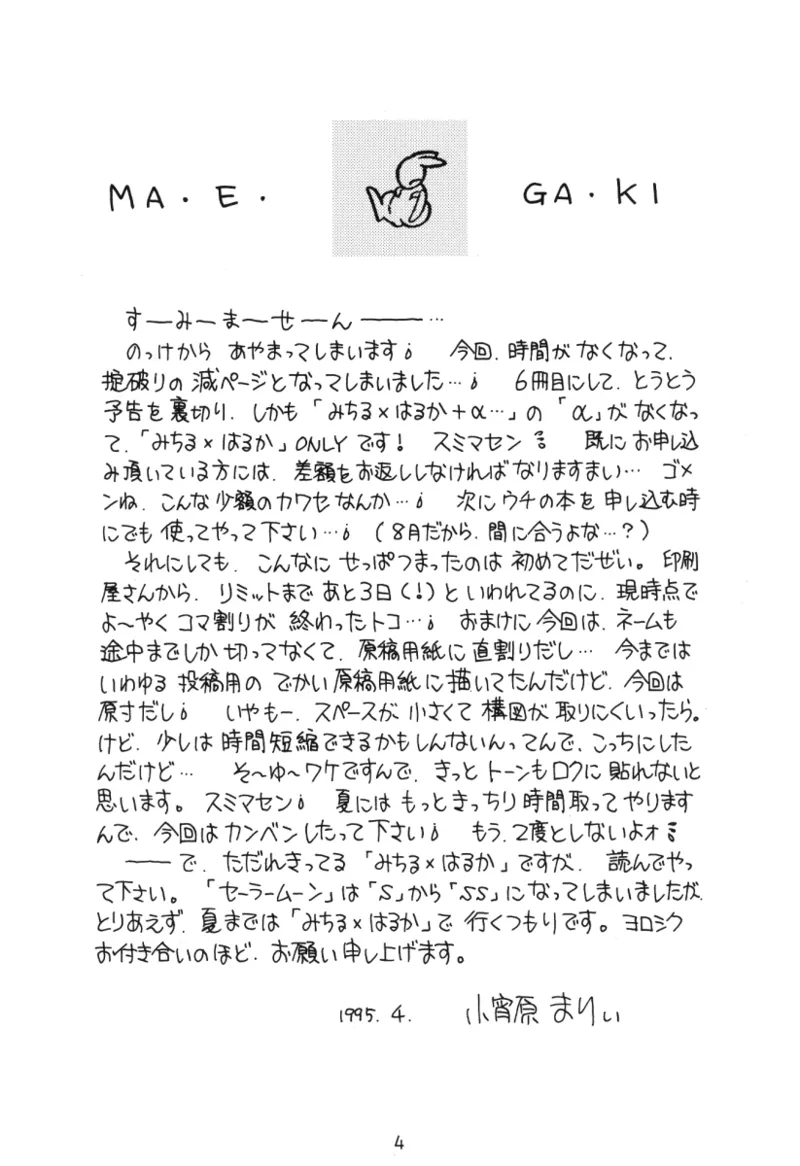 MA・E・ GA・KI
す―み―ま―せ―ん―――…
のっけから あやまってしまいます。 今回、時間がなくなって、
掟破りの減ページとなってしまいました…。 6冊目にして、とうとう
予告を裏切り、しかも「みちる×はるか+α…」の「α」がなくなっ
て、「みちる×はるか」ONLYです! スミマセン 既にお申し込
み頂いている方には、差額をお返ししなければなりますまい… ゴメ
ンね、こんな少額のカワセなんか…。 次にウチの本を申し込む時
にでも使ってやって下さい…。 (8月だから、間に合うよな…?)
それにしても、こんなにせっぱつまったのは初めてだぜい。印刷
屋さんから、リミットまであと3日(!)といわれてるのに、現時点で
よ〜やくコマ割りが終わったトコ…。 おまけに今回は、ネームも
途中までしか切ってなくて、原稿用紙に直割りだし… 今までは
いわゆる投稿用のでかい原稿用紙に描いてたんだけど、今回は
原寸だし。 いやもー、スペースが小さくて構図が取りにくいったら。
けど、少しは時間短縮できるかもしんないんってんで、こっちにした
んだけど… そ〜ゆ〜ワケですんで、きっとトーンもロクに貼れないと
思います。スミマセン。 夏にはもっときっちり時間取ってやります
んで、今回はカンベンしたって下さい。 もう、2度としないよォ
――で、ただれきってる「みちる×はるか」ですが、読んでやっ
て下さい。「セーラームーン」は「S」から「SS」になってしまいましたが、
とりあえず、夏までは「みちる×はるか」で行くつもりです。ヨロシク
お付き合いのほど、お願い申し上げます。
1995. 4. 小宵原まりぃ
4